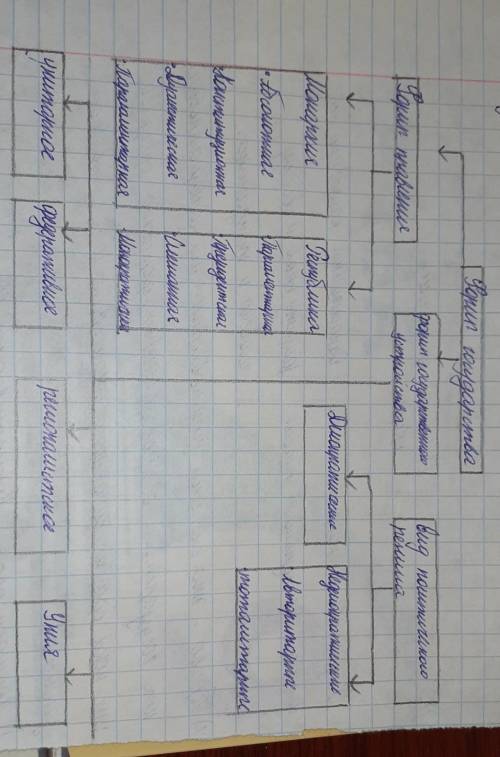 Форма государства
Форма правления
форма государственного
устройства
вид политического
режима
Монархия
• Абсолютная
Конституционная
Дуалистическая
Парламентарная
Республика
Парламентарная
Президентская
Смешанная
Демократические
Недемократические
Авторитарный
тоталитарный
унитарное
федеративное
Уния